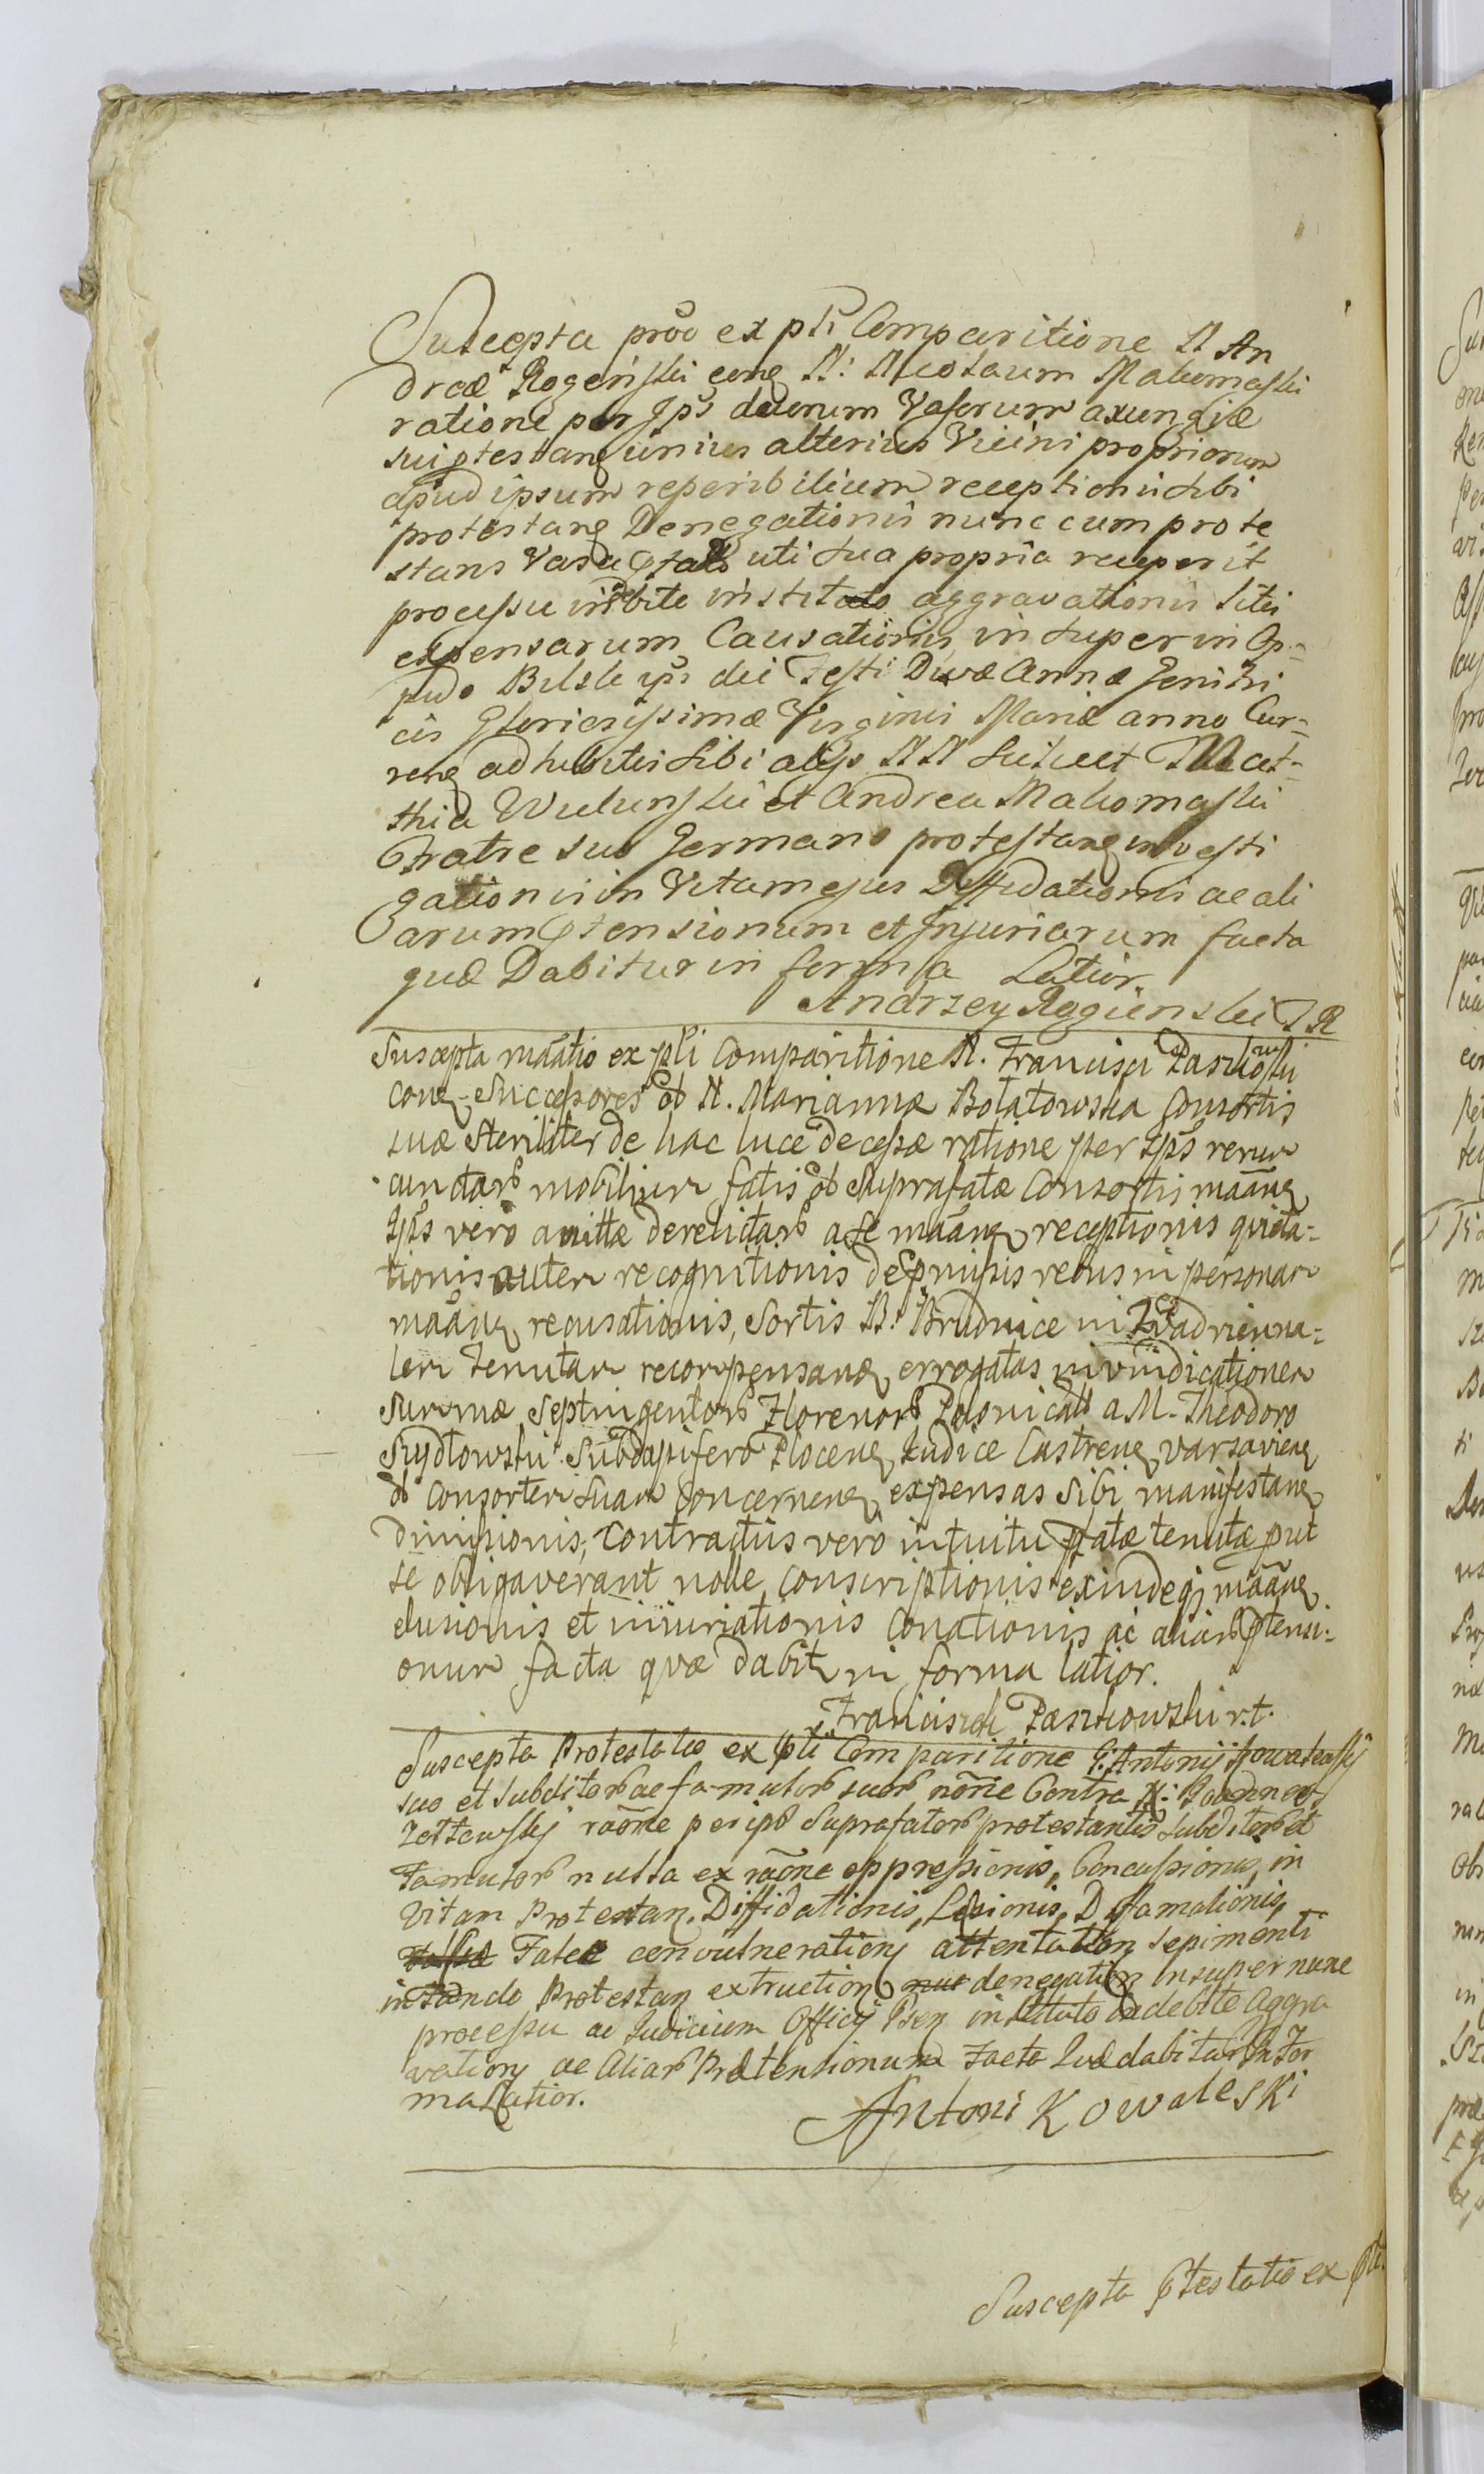 Suscepta prõo ex pli Comparitione N An
dreæ Rogeński conq N: Nicolaum Makomaski
ratione per Ips duorum Vasorum axungiæ
sui ptestanq unius alterius Vicini propriorum
apud ipsum reperibilium receptionis sibi
protestanq Denegationis nunc cum prote
stans Vasa uti sua propria receperit
processu indebite instituto aggravationis litis
expensarum Causationis insuper in Op=
pido Bielsk ipsi die Festi Divæ Annæ Genitri
cis Gloriosissimæ Virginis Mariæ anno Cur=
renq adhibitis sibi alijs NN scilicet Mat=
thia et Andrea Makomaski
Fratre suo Germano protestanq investi
gationis in Vitam ejus Diffidationis ac ali
arum ptensionum et Injuriarum facta
quæ Dabitur in forma Latior
Andrzey Rogienski
Suscepta mãatio ex pli Comparitione N. Francisci Paszkowski
conq Successores ol N. Mariannæ Bolatowska Consortis
suæ steriliter de hac luce decessæ ratione per Ips rerum
cunctarb mobilium fatis ol Suprafatæ Consortis mãanq
Ips vero amittæ derelictarb a se mãanq receptionis quieta=
tionis autem recognitionis de pmissis rebus in personam
mãanq recusationis, Sortis B: Brudnice in Qvadrienna=
lem Tenutam recompensanq errogatas in vindicationem
Summæ Septingentorb Florenorb Polonicalb a M. Theodoro
Szydłowski Subdapifero Plocenq Judice Castrenq varsavienq
ol Consortem suam Concernenq expensas sibi manifestanq
dimissionis, Contractus vero intuitu pfatæ tenutæ put
se obligaverant nolle conscriptionis exindeqj mãanq
elusionis et iniuriationis Conationis ac aliarb ptensi=
onum facta qvæ dabitr in forma latior.
Franciszek Paszkowski r.t.
Suscepta Protestatio ex pti Comparitione G: Antonij Kowalewskij
suo et subditorb ac famulorb suorb nõne Contra N:
raõne per ips Suprafatorb protestantis subditorb et
Famulorb nulla ex raõne oppressionis, Concussionis, in
Vitam Protestanq. Diffidationis, Læsionis, Diffamationis,
Talee convulnerationq attentationq sepimenti
in fundo Protestanq extructionq denegationq Insuper nunc
processu ac Judicium Officij Psenq instituto indebite Aggra
vationq ac Aliarb Prætensionum Facta Quæ dabitur In For
ma Latior.
Antoni Kowaleski
Suscepta ptestatio ex pti